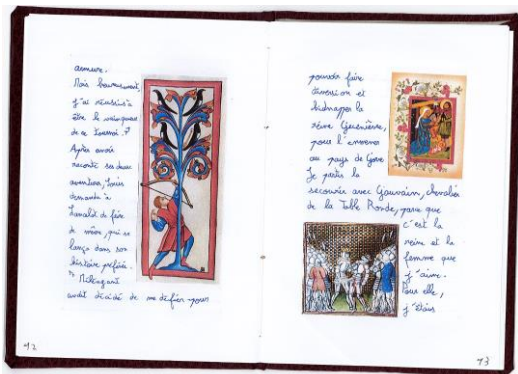 armure.
Mais heureusement,
j'ai réussis à
être le vainqueur
de ce tournoi."
Après avoir
raconté ses deux
aventures, Louis
demanda à
Lancelot de faire
de même, qui se
lança dans son
histoire préférée.
" Méléagant
avait décidé de me défier pour
42
pouvoir faire
diversion et
kidnapper la
reine Guenièvre,
pour l'emmener
au pays de Gorre
Je partis la
secourir avec Gauvain, chevalier
de la Table Ronde, parce que
c'est la
reine et la
femme que
j'aime.
Pour elle,
j'étais
43